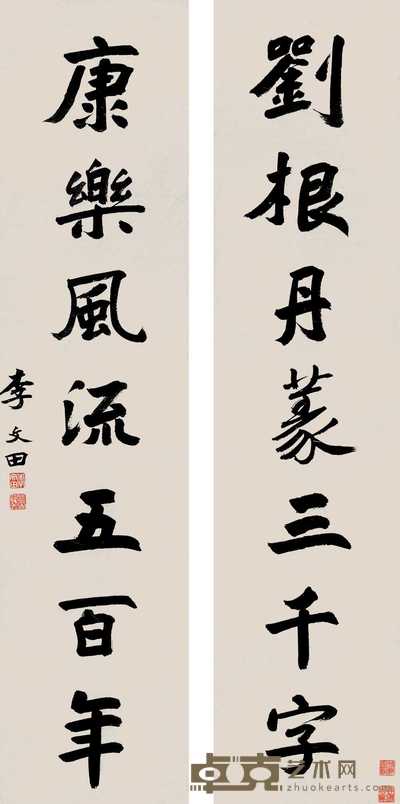 劉根丹篆三千字
康樂風流五百年
李文田
卓克艺术网
zhuokearts.com